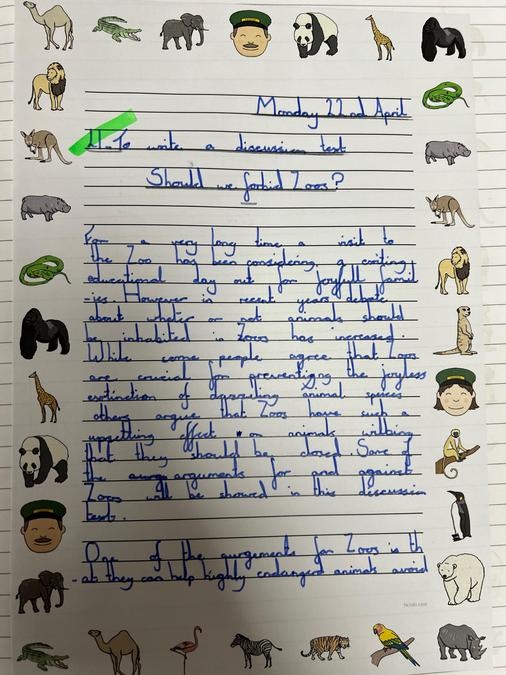 Monday 22nd April
LI-To write a discussion text
Should we forbid Zoos?
For a very long time a visit to
the Zoo has been considering, a exiting
educational day out for joyfull famil
-ies. However in recent years debate
about wheter or not animals should
be inhabited in Zoos has increased.
While some people agree that Zoos
are crucial for preventigng the joyless
extinction of dazzaling animal speices
others argue that Zoos have such a
upsetting effect on animals willbing
that they should be closed. Some of
the arguments for and against
Zoos will be showed in this discussion
text.
One of the aurgements for Zoos is th
-at they can help highly endangerd animals avoid